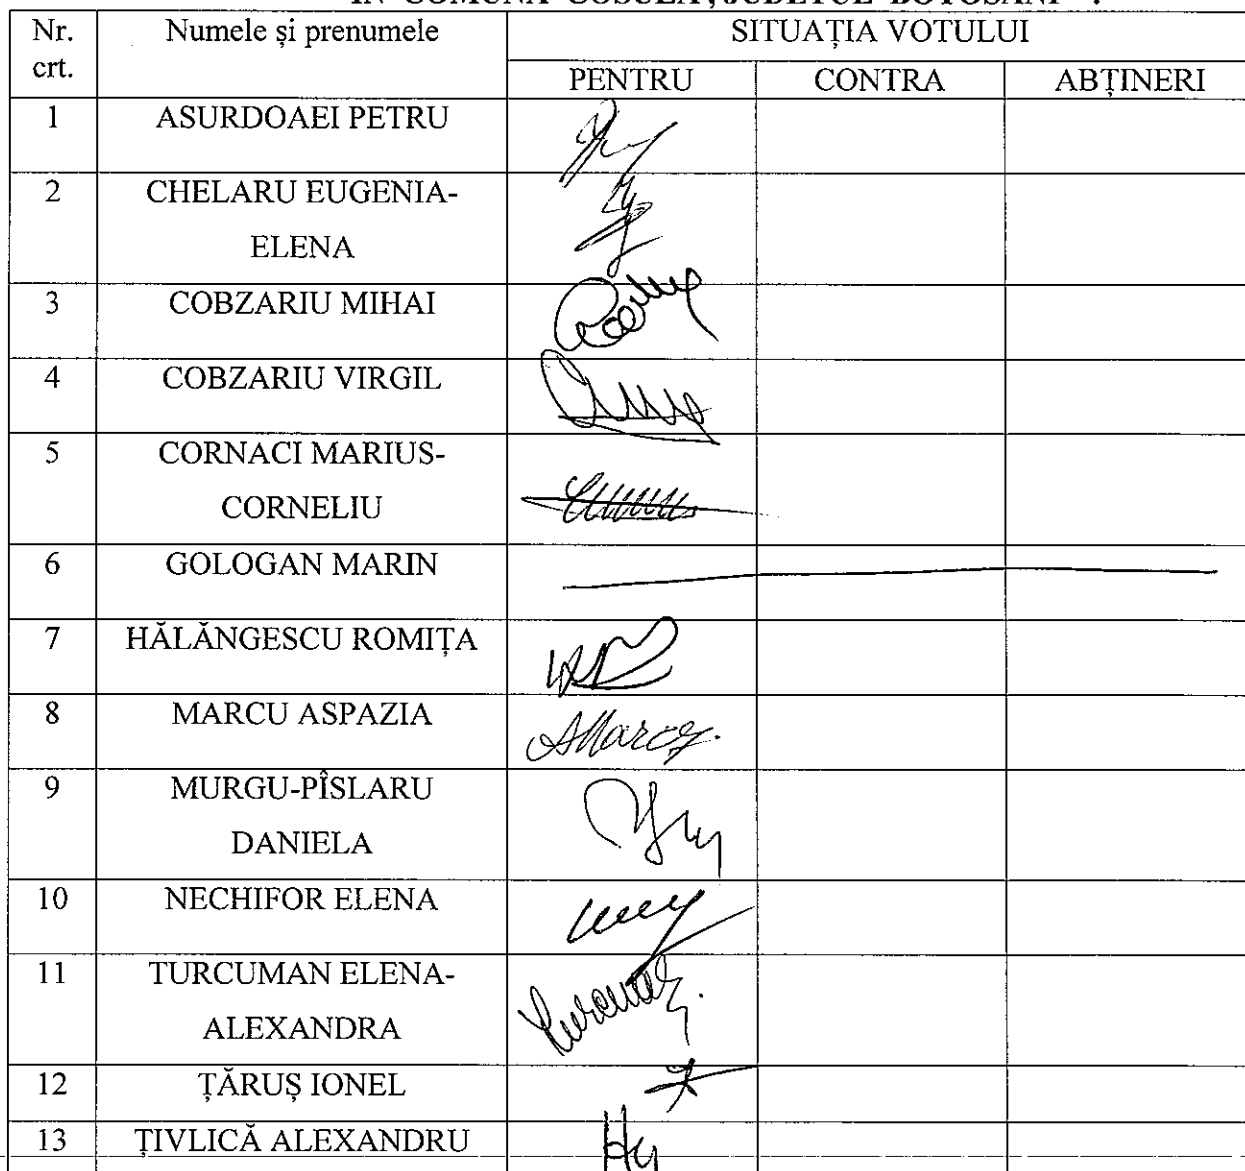 IN COMUNA COSULA, JUDETUL BOTOSANI".
Nr. crt. Numele și prenumele SITUAȚIA VOTULUI
PENTRU CONTRA ABȚINERI
1 ASURDOAEI PETRU
2 CHELARU EUGENIA-
ELENA
3 COBZARIU MIHAI
4 COBZARIU VIRGIL
5 CORNACI MARIUS-
CORNELIU
6 GOLOGAN MARIN
7 HĂLĂNGESCU ROMIȚA
8 MARCU ASPAZIA
9 MURGU-PÎSLARU
DANIELA
10 NECHIFOR ELENA
11 TURCUMAN ELENA-
ALEXANDRA
12 ȚĂRUȘ IONEL
13 ȚIVLICĂ ALEXANDRU